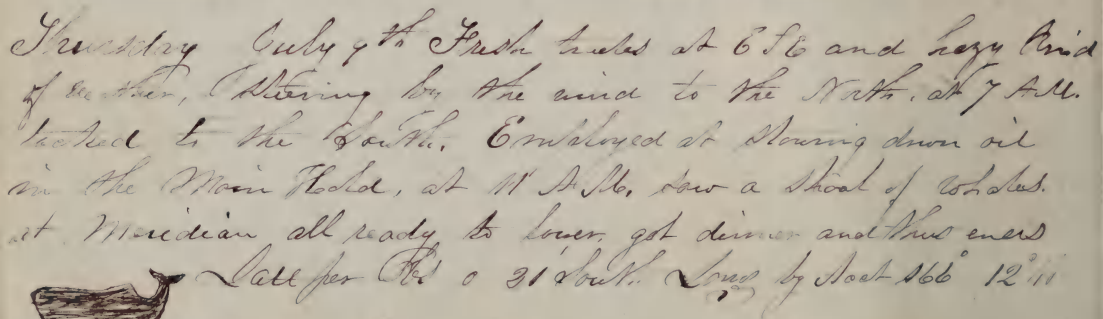 Thursday July 9th Fresh trades at ESE and hazy kind
of weather, Steering by the wind to the North. at 7 A.M.
tacked to the South. Employed at stowing down oil
in the Main Hold, at 11 A.M. saw a shoal of whales.
at Meridian all ready to lower, got dinner and thus ends
Latt per Obs 0 31 South. Long by 166° 12